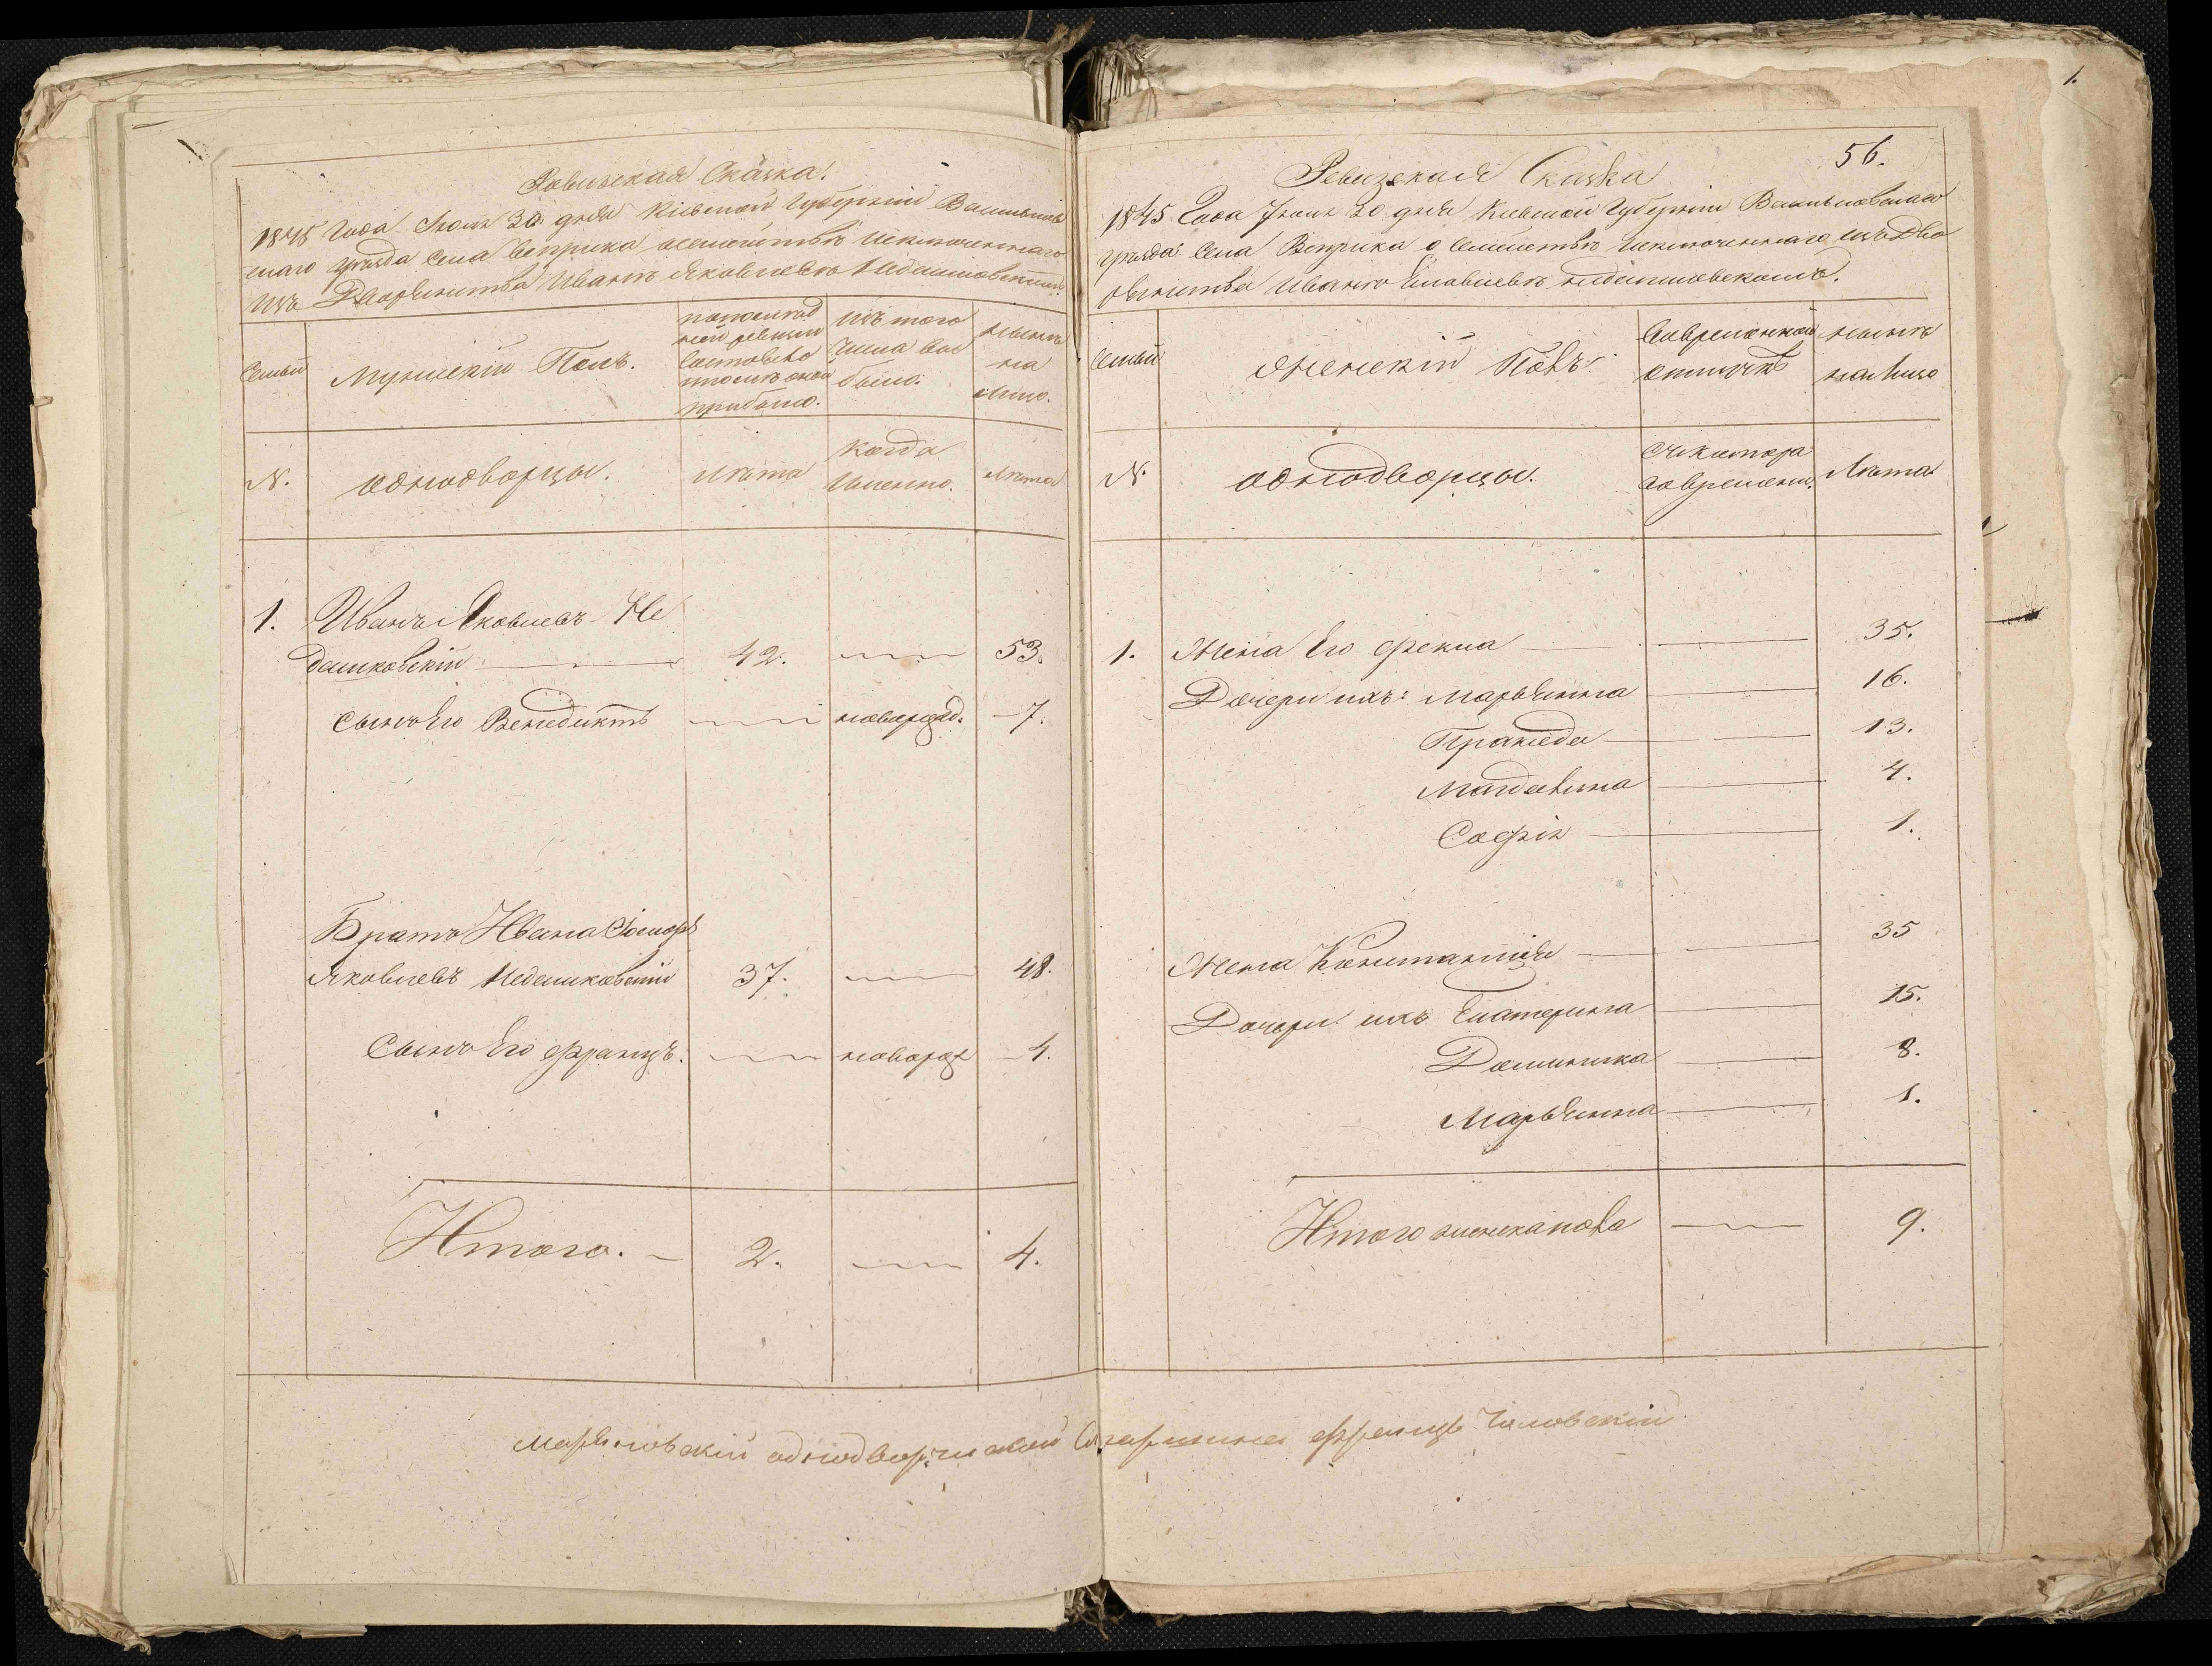 Ревизская Сказка.
1845 Года Июня 30 дня Кіевской Губерніи Василковс
каго уезда Села Веприка осемействѣ исключеннаго
изъ Дворянства Иванѣ Яковлевѣ Недашковском.
Семьи
Мужескій Полъ.
попослед
ней ревизіи
Состояло
ипослѣ оной
прибыло.
Изъ того
Числа вы
было.
нынѣ
на
лицо.
N.
однодворцы.
Лѣта
Когда
Именно.
Лѣта
1. Иванъ Яковлевъ Не
дашковскій 42. 53.
Сынъ Его Венедиктъ новорожд. 7.
Братъ Ивана
Яковлевъ Недашковскій 37. 48.
Сынъ Его Францъ. новорож 4.
Итого. 2. 4.
1.
56.
Ревизская Сказка
1845 Года Іюня 30 дня Кіевской Губерніи Васильковскаго
уезда Села Веприка о Семействѣ исключеннаго изъ Дво
рянства Иванѣ Яковлевѣ недашковскомъ.
Семьи
Женскій Полъ.
Вовременной
отлучкѣ
нынѣ
налицо
N.
однодворцы.
Съкотора
говремени.
Лѣта
1. Жена Его Фекла 35.
Дочери ихъ: Марьянна 16.
Пракседа 13.
Магдалина 4.
Софія 1.
Жена Констанція 35
Дочери ихъ Екатерина 15.
Доминика 8.
Марьянна 1.
Итого женска пола 9.
однодворческій Старшина Францъ